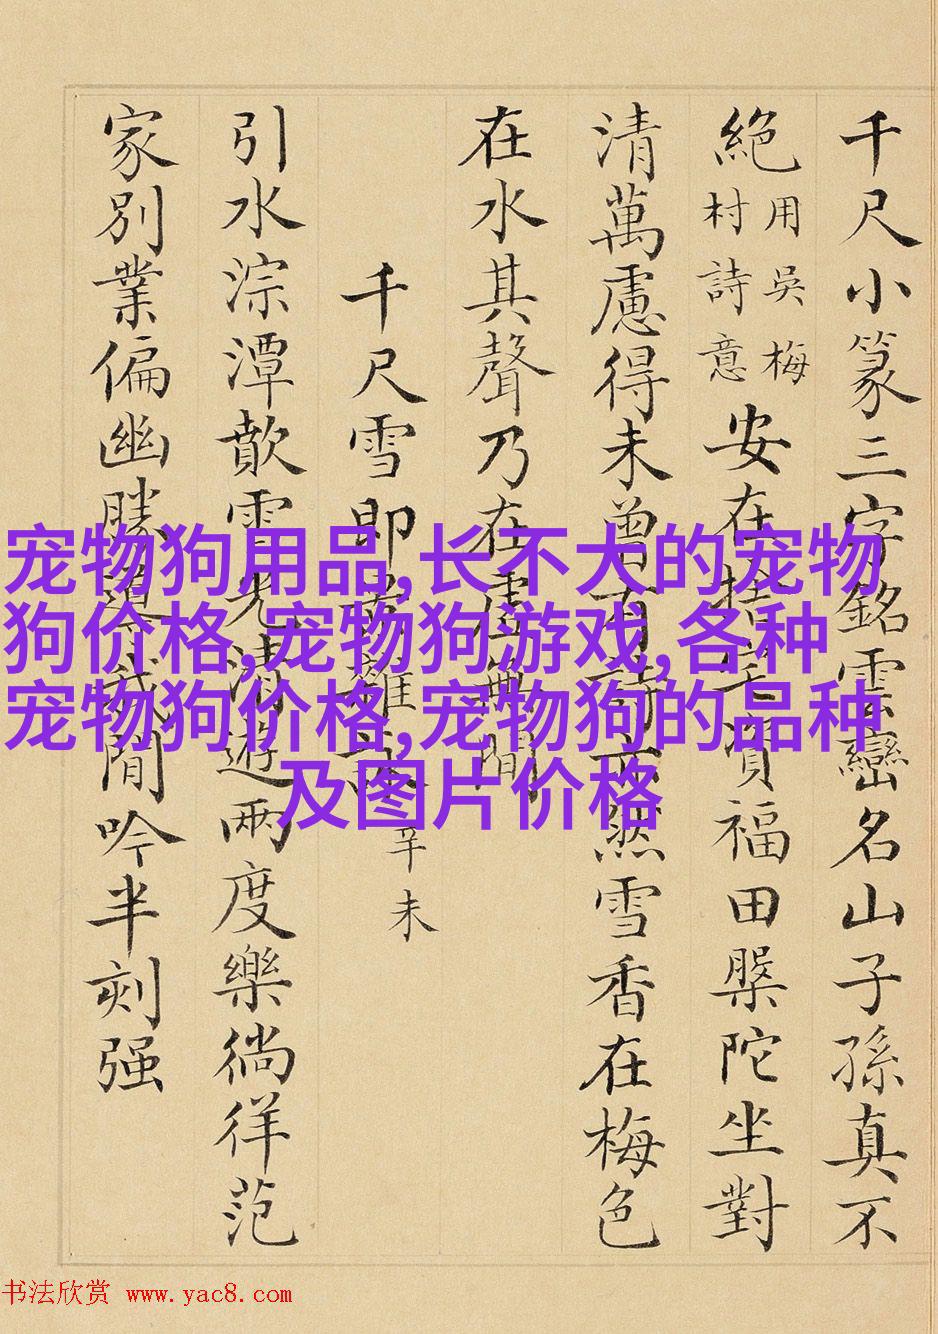 千尺小篆三字銘雲巒名山子孫真不
絶用吳梅村詩意安在指福田槃陀坐對
清萬慮得未曾有詩然雪香在梅色
在水其聲乃在虛無間
千尺雪即辛未
引水淙潭歕雪清遊兩度樂徜徉范
家別業偏幽勝閒吟半刻强
宠物狗用品,长不大的宠物
狗价格,宠物狗游戏,各种
宠物狗价格,宠物狗的品种
及图片价格
书法欣赏 www.yac8.com